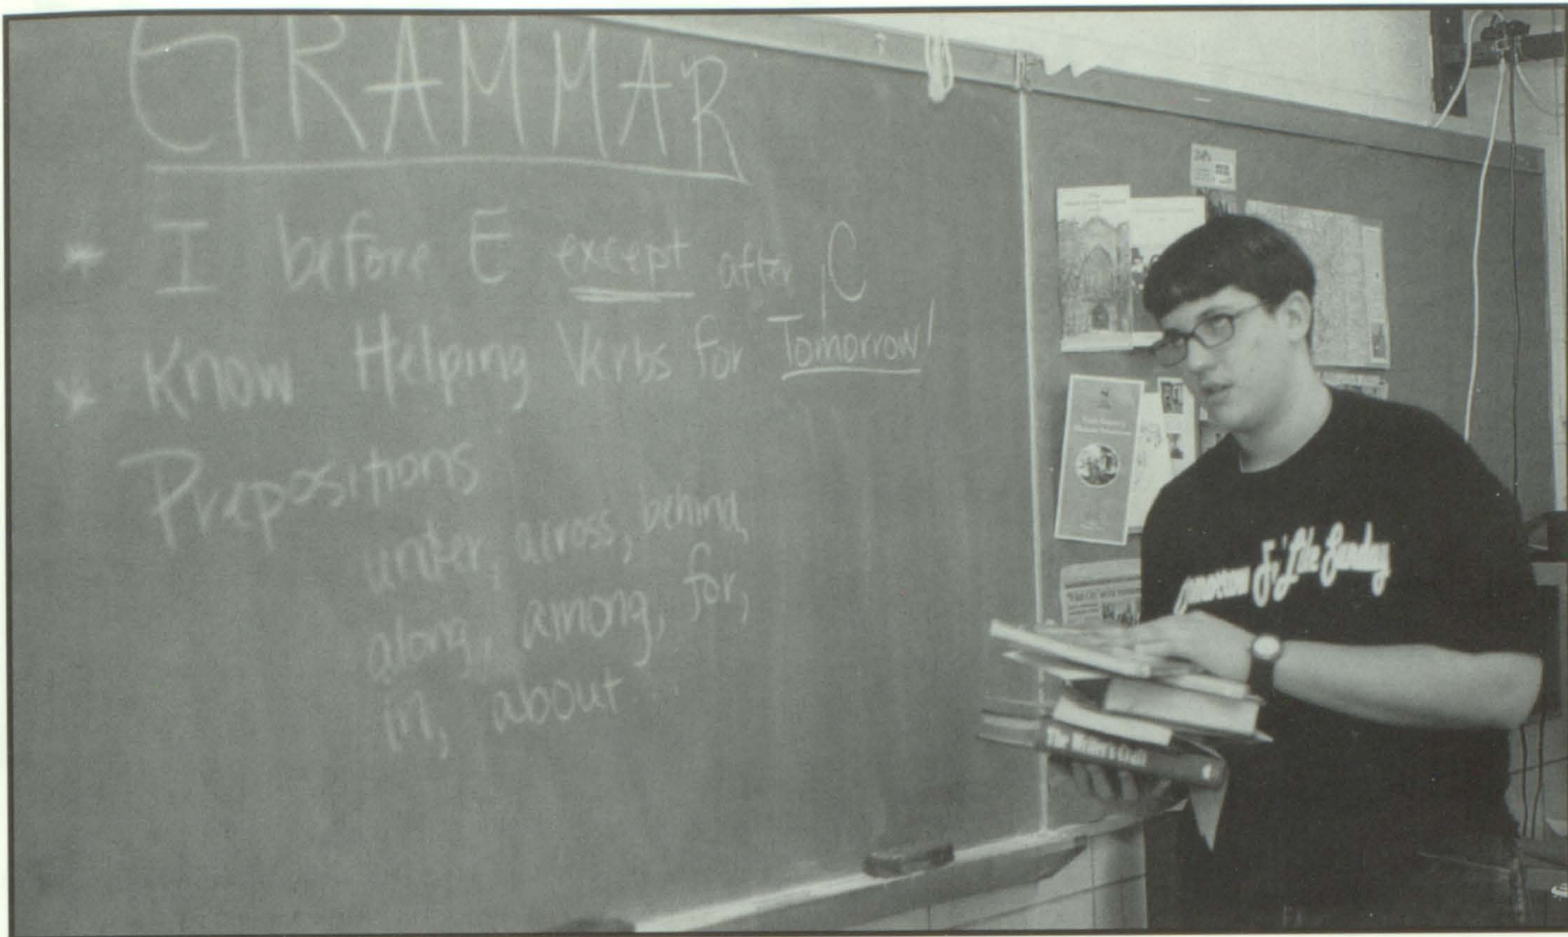 GRAMMAR
* I before E except after C
* Know Helping Verbs for Tomorrow!
Prepositions
under, across, behind,
along, among, for,
in, about
The Writer's Craft